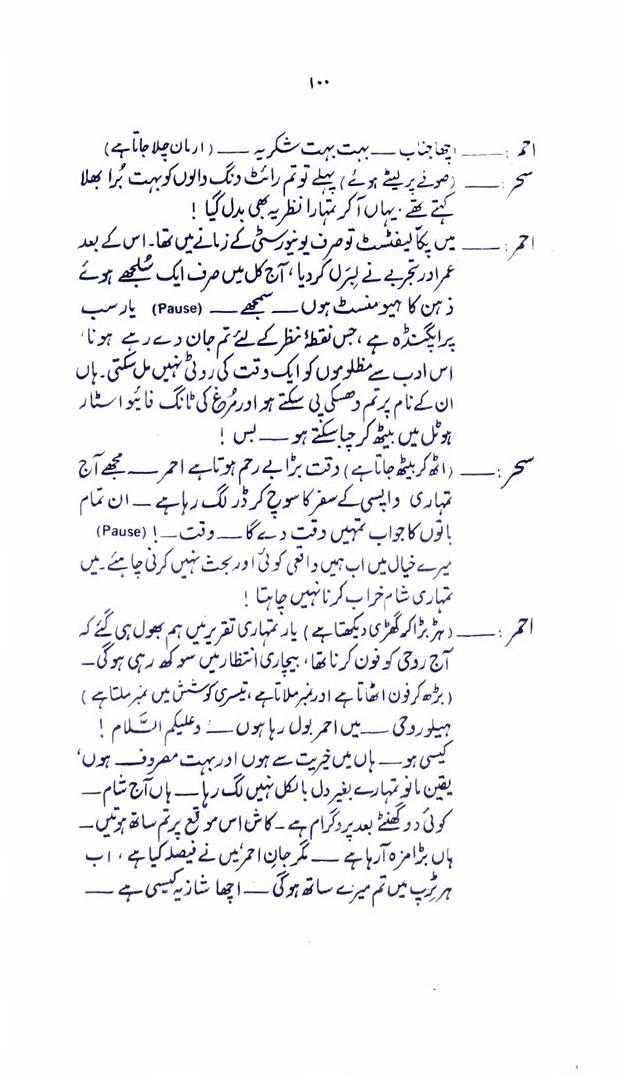 ۱۰۰
احمر : ـــــ اچھا جناب ــ بہت بہت شکریہ ــ (ارمان چلا جاتا ہے)
سحر : ـــــ (صوفے پر لیٹے ہوئے) پہلے تو تم رائٹ ونگ والوں کو بہت بُرا بھلا
کہتے تھے ۔ یہاں آ کر تمہارا نظریہ بھی بدل گیا !
احمر : ـــــ میں پکا لیفٹسٹ تو صرف یونیورسٹی کے زمانے میں تھا۔ اس کے بعد
عمر اور تجربے نے لبرل کر دیا ، آج کل میں صرف ایک سُلجھے ہوئے
ذہن کا ہیومنسٹ ہوں ــ سمجھے ــ (Pause) یار سب
پراپگنڈہ ہے ، جس نقطۂ نظر کے لئے تم جان دے رہے ہونا ،
اس ادب سے مظلوموں کو ایک وقت کی روٹی نہیں مل سکتی۔ ہاں
ان کے نام پر تم وھسکی پی سکتے ہو اور مُرغ کی ٹانگ فائیو اسٹار
ہوٹل میں بیٹھ کر چبا سکتے ہو ــ بس !
سحر : ـــــ (اٹھ کر بیٹھ جاتا ہے) وقت بڑا بے رحم ہوتا ہے احمر ــ مجھے آج
تمہاری واپسی کے سفر کا سوچ کر ڈر لگ رہا ہے ــ ان تمام
باتوں کا جواب تمہیں وقت دے گا ــ وقت ــ ! (Pause)
میرے خیال میں اب ہمیں واقعی کوئی اور بحث نہیں کرنی چاہئے۔ میں
تمہاری شام خراب کرنا نہیں چاہتا !
احمر : ـــــ (ہڑبڑا کر گھڑی دیکھتا ہے) یار تمہاری تقریر میں ہم بھول ہی گئے کہ
آج روحی کو فون کرنا تھا ، بیچاری انتظار میں سوکھ رہی ہوگی ــ
(بڑھ کر فون اٹھاتا ہے اور نمبر ملاتا ہے ، تیسری کوشش میں نمبر ملتا ہے)
ہیلو روحی ــ میں احمر بول رہا ہوں ــ وعلیکم السَّلام !
کیسی ہو ــ ہاں میں خیریت سے ہوں اور بہت مصروف ہوں ،
یقین مانو تمہارے بغیر دل بالکل نہیں لگ رہا ــ ہاں آج شام ــ
کوئی دو گھنٹے بعد پروگرام ہے ــ کاش اس موقع پر تم ساتھ ہوتیں ــ
ہاں بڑا مزہ آ رہا ہے ــ مگر جانِ احمر مَیں نے فیصلہ کیا ہے ، اب
ہر ٹرپ میں تم میرے ساتھ ہوگی ــ اچھا شازیہ کیسی ہے ــ